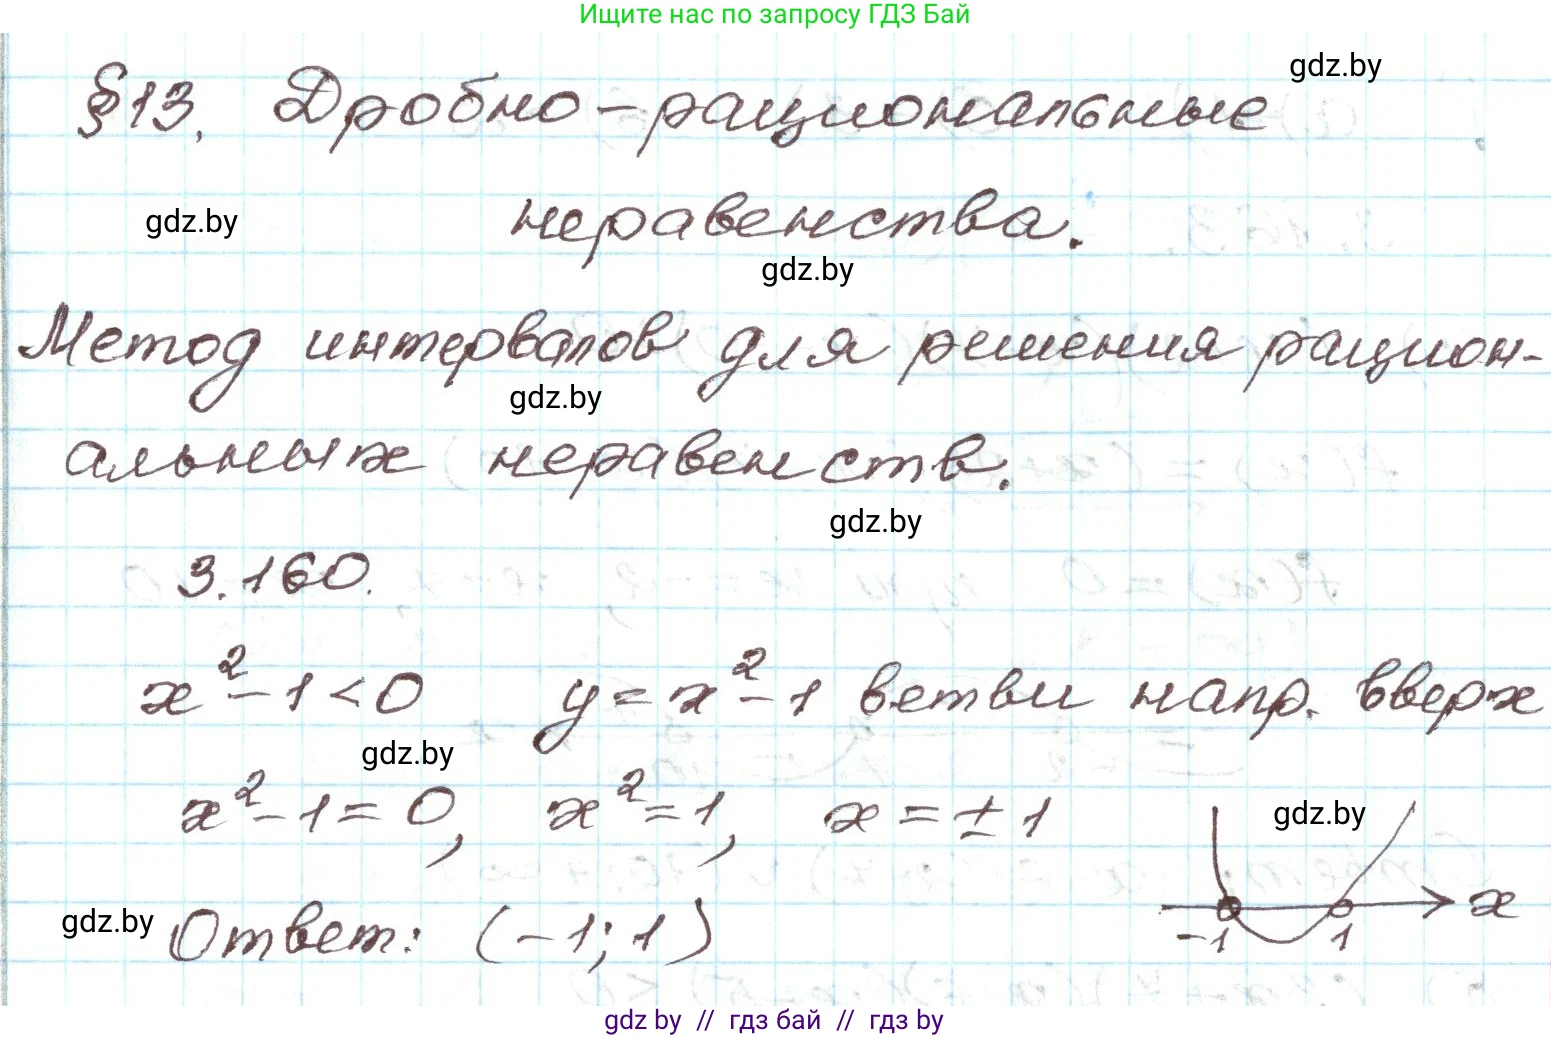 Ищите нас по запросу ГДЗ Бай
gdz.by
§13. Дробно-рациональные
gdz.by
неравенства.
gdz.by
Метод интервалов для решения рацион-
gdz.by
альных неравенств.
gdz.by
3.160.
x²-1<0 y=x²-1 ветви напр. вверх
gdz.by
x²-1=0, x²=1, x=±1
gdz.by
x
gdz.by
Ответ: (-1; 1)
-1 1
gdz by // гдз бай // гдз by